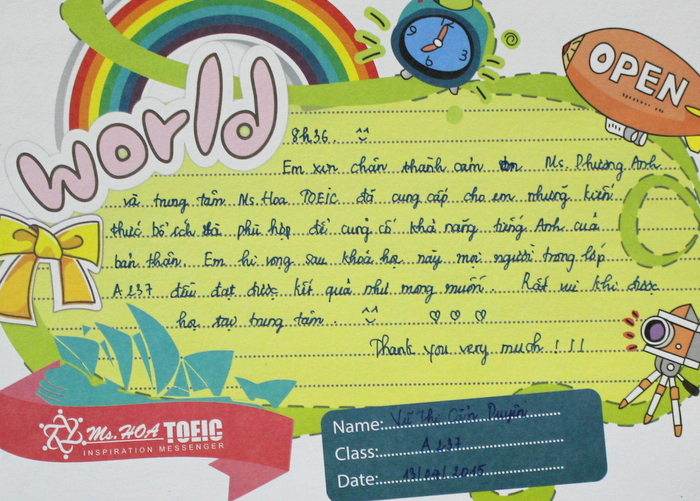 world
9
6
3
OPEN
8h36. ^^
Em xin chân thành cảm ơn Ms. Phương Anh
và trung tâm Ms. Hoa TOEIC đã cung cấp cho em những kiến
thức bổ ích và phù hợp để củng cố khả năng tiếng Anh của
bản thân. Em hi vọng sau khoá học này mọi người trong lớp
A237 đều đạt được kết quả như mong muốn. Rất vui khi được
học tại trung tâm. ^^ ♡ ♡ ♡
Thank you very much ! ! !
Ms. HOA TOEIC
INSPIRATION MESSENGER
Name: Vũ Thị Duyên
Class: A237
Date: 13/09/2015